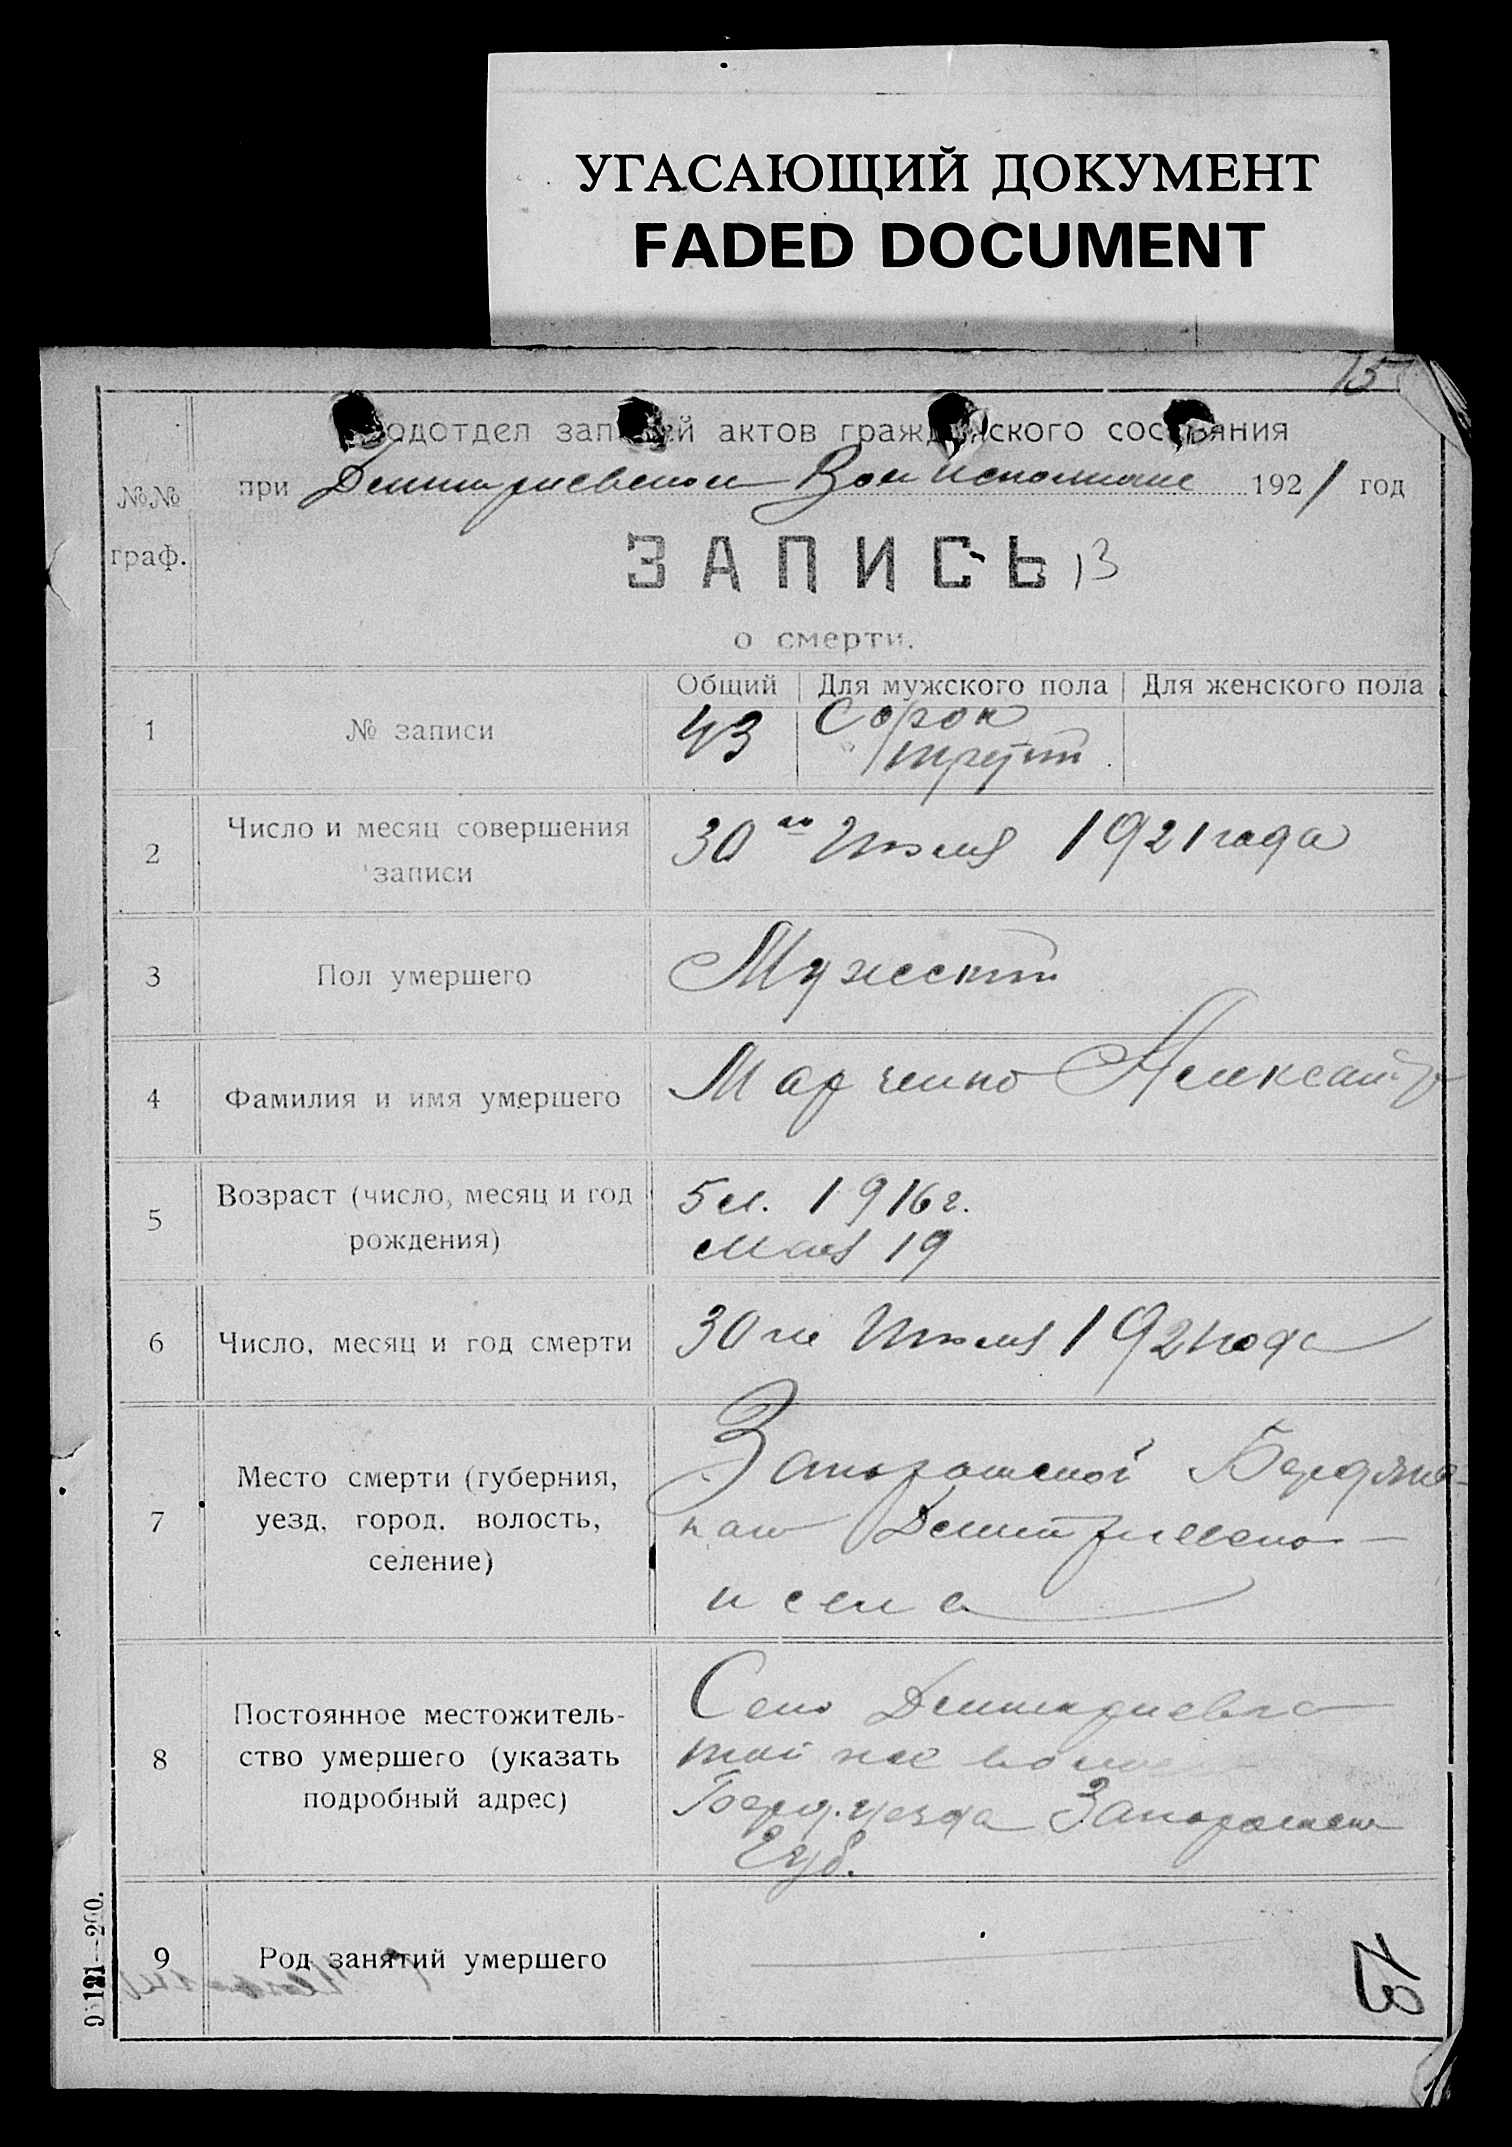 УГАСАЮЩИЙ ДОКУМЕНТ
FADED DOCUMENT
15
Подотдел записей актов гражданского состояния
№№ граф.
при Дмитриевском Волисполкоме 1921 год
ЗАПИСЬ 13
о смерти.
Общий Для мужского пола Для женского пола
1 № записи 43 Сорок
третий
2 Число и месяц совершения
записи
30го Июля 1921 года
3 Пол умершего Мужской
4 Фамилия и имя умершего Марченко Александр
5 Возраст (число, месяц и год
рождения)
5 л. 1916 г.
Мая 19
6 Число, месяц и год смерти 30го Июля 1921 года
7 Место смерти (губерния,
уезд, город, волость,
селение)
Запорожской Бердянс-
каго Дмитриевско-
и села
8 Постоянное местожитель-
ство умершего (указать
подробный адрес)
Село Дмитриевка
той же волос
Берд. уезда Запорожск
Губ.
9 Род занятий умершего
13